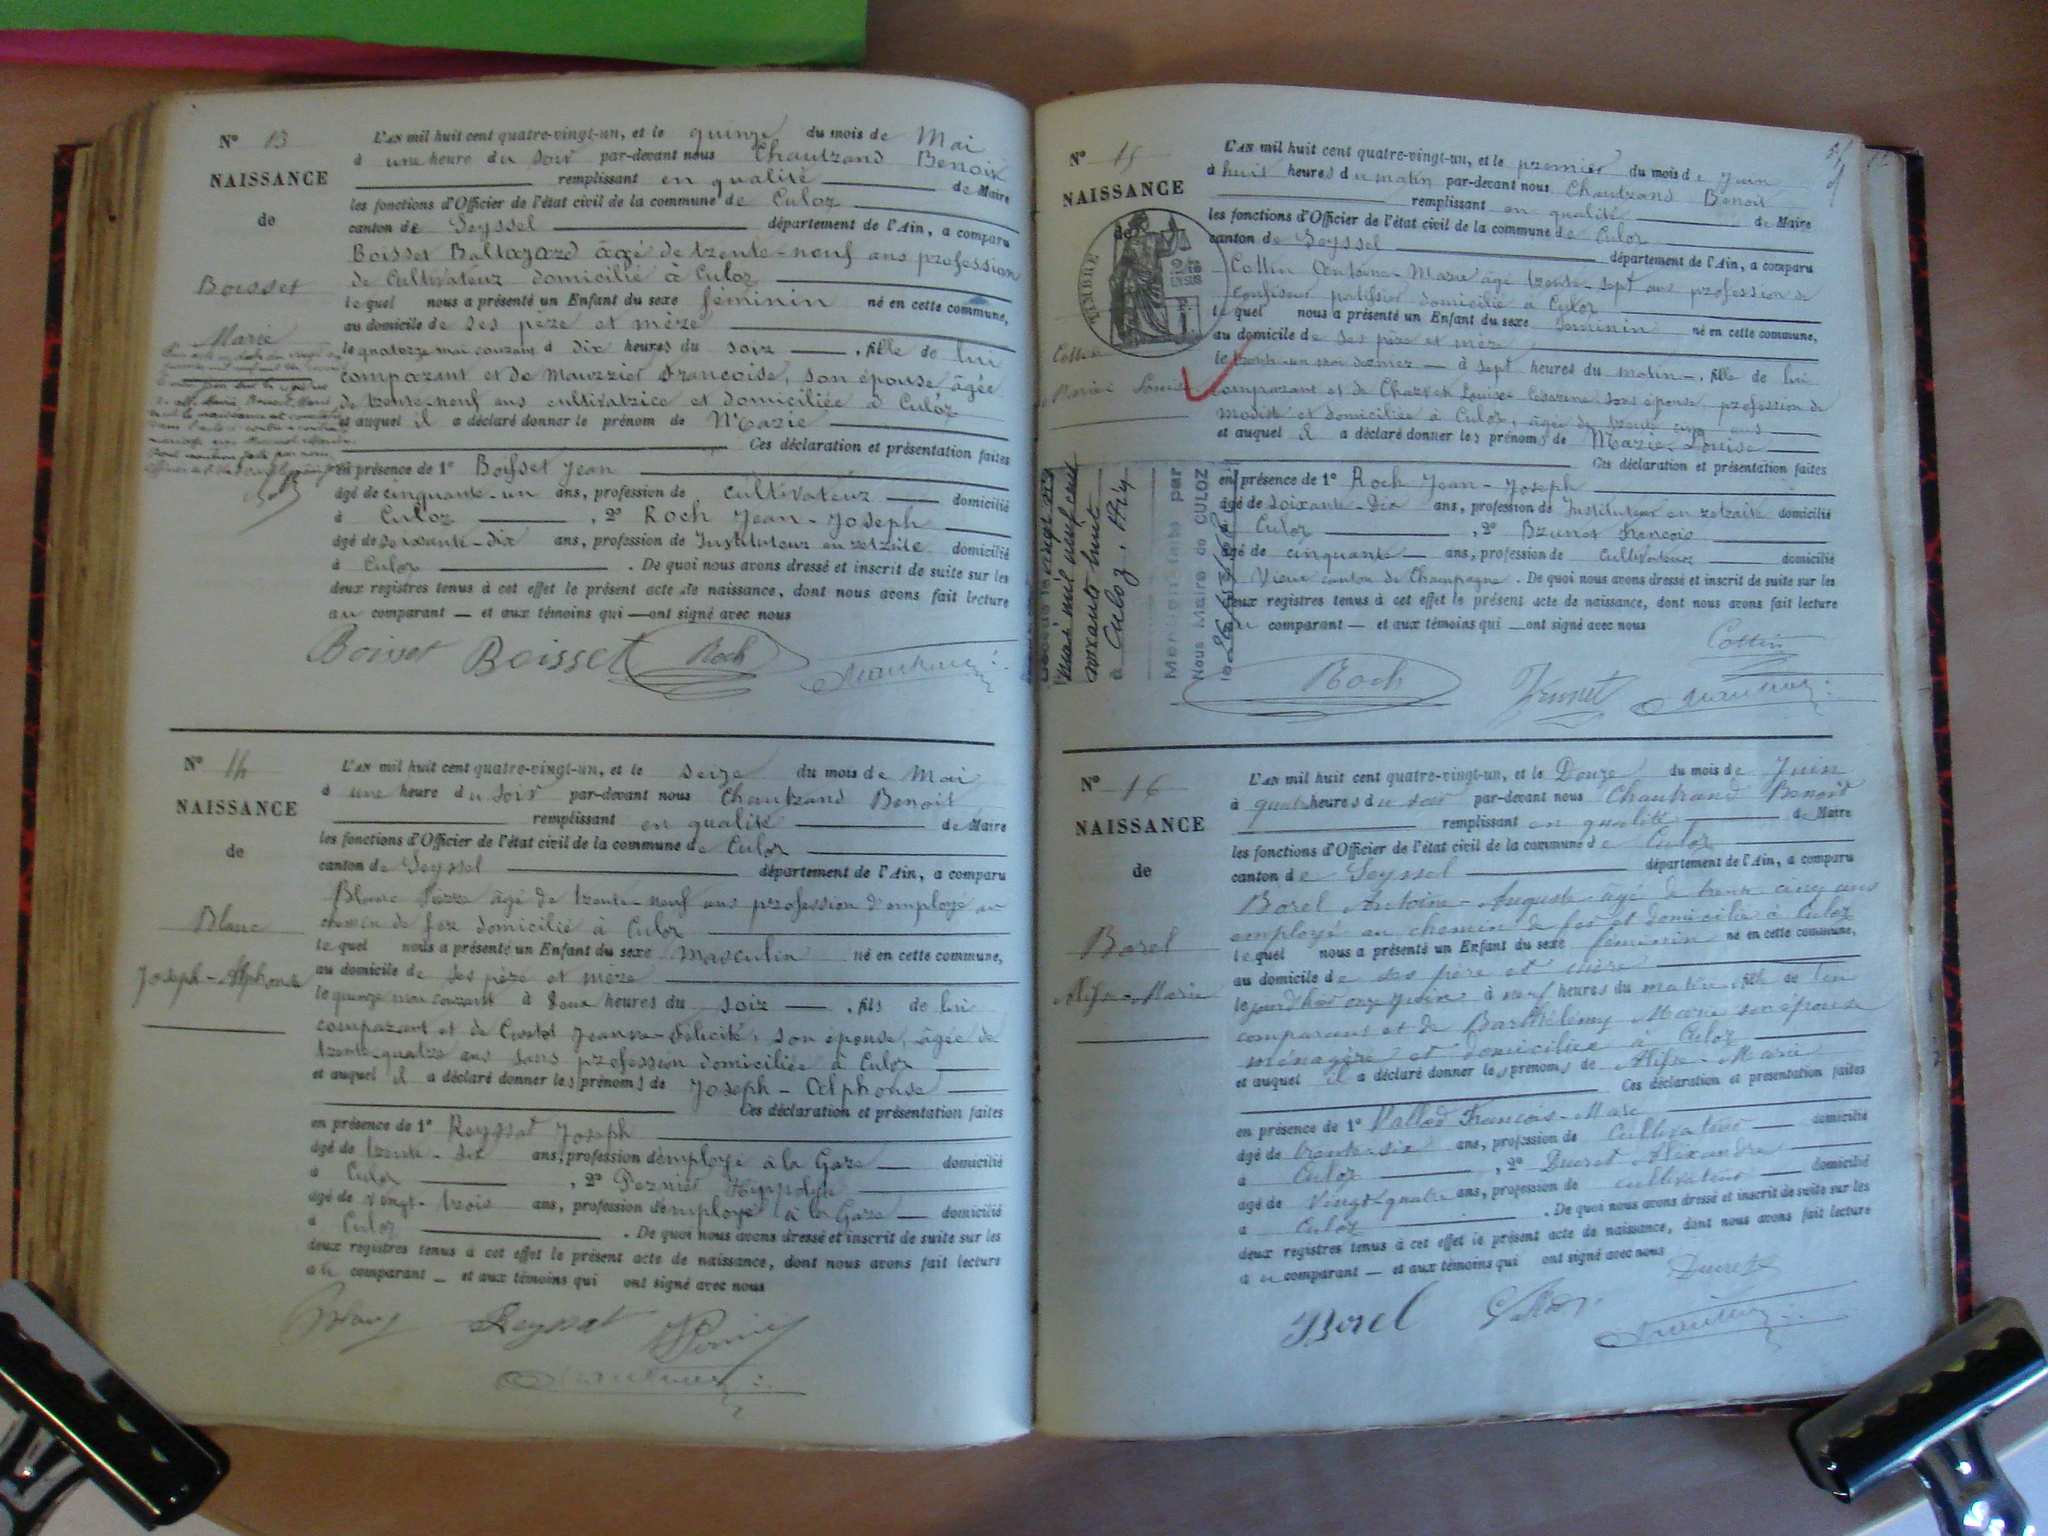 N° 13
NAISSANCE
de
Boisset
Marie
L'AN mil huit cent quatre-vingt-un, et le quinze du mois de Mai
à une heure du soir par-devant nous Chautrand Benoit
remplissant en qualité de Maire
les fonctions d'Officier de l'état civil de la commune de Culoz
canton de Seyssel département de l'Ain, a comparu
Boisset Baltazard âgé de trente-neuf ans profession
de Cultivateur domicilié à Culoz
le quel nous a présenté un Enfant du sexe féminin né en cette commune,
au domicile de ses père et mère
le quatorze mai courant à dix heures du soir, fille de lui
comparant et de Maurrier Françoise, son épouse, âgée
de trente-neuf ans cultivatrice et domiciliée à Culoz
et auquel il a déclaré donner le prénom de Marie
Ces déclaration et présentation faites
en présence de 1° Boisset Jean
âgé de cinquante-un ans, profession de cultivateur domicilié
à Culoz, 2° Roch Jean-Joseph
âgé de soixante-dix ans, profession de Instituteur en retraite domicilié
à Culoz. De quoi nous avons dressé et inscrit de suite sur les
deux registres tenus à cet effet le présent acte de naissance, dont nous avons fait lecture
au comparant — et aux témoins qui — ont signé avec nous
Boisset Boisset Roch
N° 14
NAISSANCE
de
Blanc
Joseph-Alphonse
L'AN mil huit cent quatre-vingt-un, et le seize du mois de Mai
à une heure du soir par-devant nous Chautrand Benoit
remplissant en qualité de Maire
les fonctions d'Officier de l'état civil de la commune de Culoz
canton de Seyssel département de l'Ain, a comparu
Blanc Pierre âgé de trente-neuf ans profession d'employé au
chemin de fer domicilié à Culoz
le quel nous a présenté un Enfant du sexe masculin né en cette commune,
au domicile de ses père et mère
le quinze mai courant à deux heures du soir, fils de lui
comparant et de Jeanne-Félicité, son épouse, âgée de
trente-quatre ans sans profession domiciliée à Culoz
et auquel il a déclaré donner les prénoms de Joseph-Alphonse
Ces déclaration et présentation faites
en présence de 1° Reyssat Joseph
âgé de trente-dix ans, profession d'employé à la Gare domicilié
à Culoz, 2° Pernier Hippolyte
âgé de vingt-trois ans, profession d'employé à la Gare domicilié
à Culoz. De quoi nous avons dressé et inscrit de suite sur les
deux registres tenus à cet effet le présent acte de naissance, dont nous avons fait lecture
au comparant — et aux témoins qui ont signé avec nous
Blanc Reyssat
N° 15
NAISSANCE
de
TIMBRE
Cottin
Marie Louise
L'AN mil huit cent quatre-vingt-un, et le premier du mois de Juin
à huit heures du matin par-devant nous Chautrand Benoit
remplissant en qualité de Maire
les fonctions d'Officier de l'état civil de la commune de Culoz
canton de Seyssel département de l'Ain, a comparu
Cottin Antoine-Marie âgé trente-sept ans profession de
confiseur patissier domicilié à Culoz
le quel nous a présenté un Enfant du sexe féminin né en cette commune,
au domicile de ses père et mère
le trente-un mai dernier — à sept heures du matin, fille de lui
comparant et de Louise Césarine son épouse, profession de
modiste et domiciliée à Culoz, âgée de trente ans
et auquel il a déclaré donner les prénoms de Marie-Louise
Ces déclaration et présentation faites
en présence de 1° Roch Jean-Joseph
âgé de soixante-dix ans, profession de Instituteur en retraite domicilié
à Culoz, 2° Brunet François
âgé de cinquante ans, profession de cultivateur domicilié
à Vieux canton de Champagne. De quoi nous avons dressé et inscrit de suite sur les
deux registres tenus à cet effet le présent acte de naissance, dont nous avons fait lecture
au comparant — et aux témoins qui — ont signé avec nous
Cottin
Roch Brunet
Décédée le vingt six
mai mil neuf cent
soixante huit
à Culoz
Mention faite par
Nous Maire de CULOZ
N° 16
NAISSANCE
de
Borel
Alix-Marie
L'AN mil huit cent quatre-vingt-un, et le Douze du mois de Juin
à quatre heures du soir par-devant nous Chautrand Benoit
remplissant en qualité de Maire
les fonctions d'Officier de l'état civil de la commune de Culoz
canton de Seyssel département de l'Ain, a comparu
Borel Antoine-Auguste âgé de trente cinq ans
employé au chemin de fer et domicilié à Culoz
le quel nous a présenté un Enfant du sexe féminin né en cette commune,
au domicile de ses père et mère
le onze juin à neuf heures du matin fille de lui
comparant et de Barthélémy Marie son épouse
ménagère et domiciliée à Culoz
et auquel il a déclaré donner les prénoms de Alix-Marie
Ces déclaration et présentation faites
en présence de 1° Vallod François-Marc
âgé de trente-six ans, profession de Cultivateur domicilié
à Culoz, 2° Ducret Alexandre
âgé de vingt-quatre ans, profession de cultivateur domicilié
à Culoz. De quoi nous avons dressé et inscrit de suite sur les
deux registres tenus à cet effet le présent acte de naissance, dont nous avons fait lecture
au comparant — et aux témoins qui ont signé avec nous
Ducret
Borel